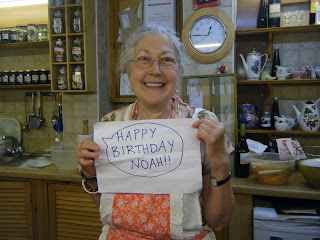 HAPPY
BIRTHDAY
NOAH!!